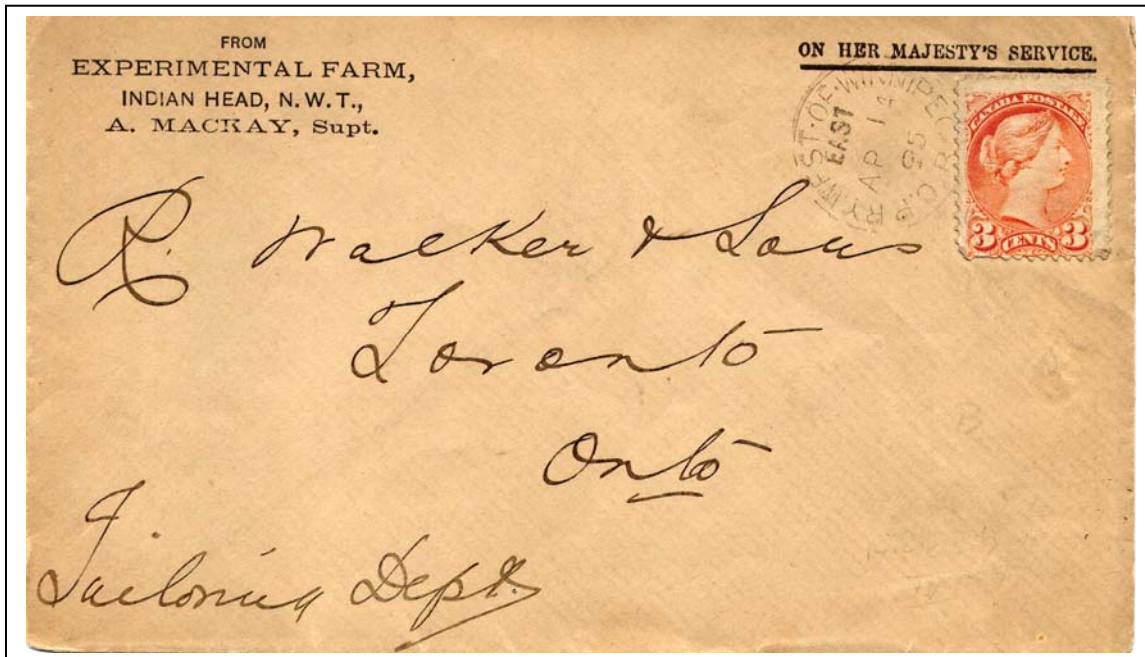 FROM
EXPERIMENTAL FARM,
INDIAN HEAD, N.W.T.,
A. MACKAY, Supt.
ON HER MAJESTY'S SERVICE.
RY WEST·OF·WINNIPEG
EAST
AP 14
95
CANADA POSTAGE
3 CENTS 3
R. Walker & Sons
Toronto
Onto
Tailoring Dept.